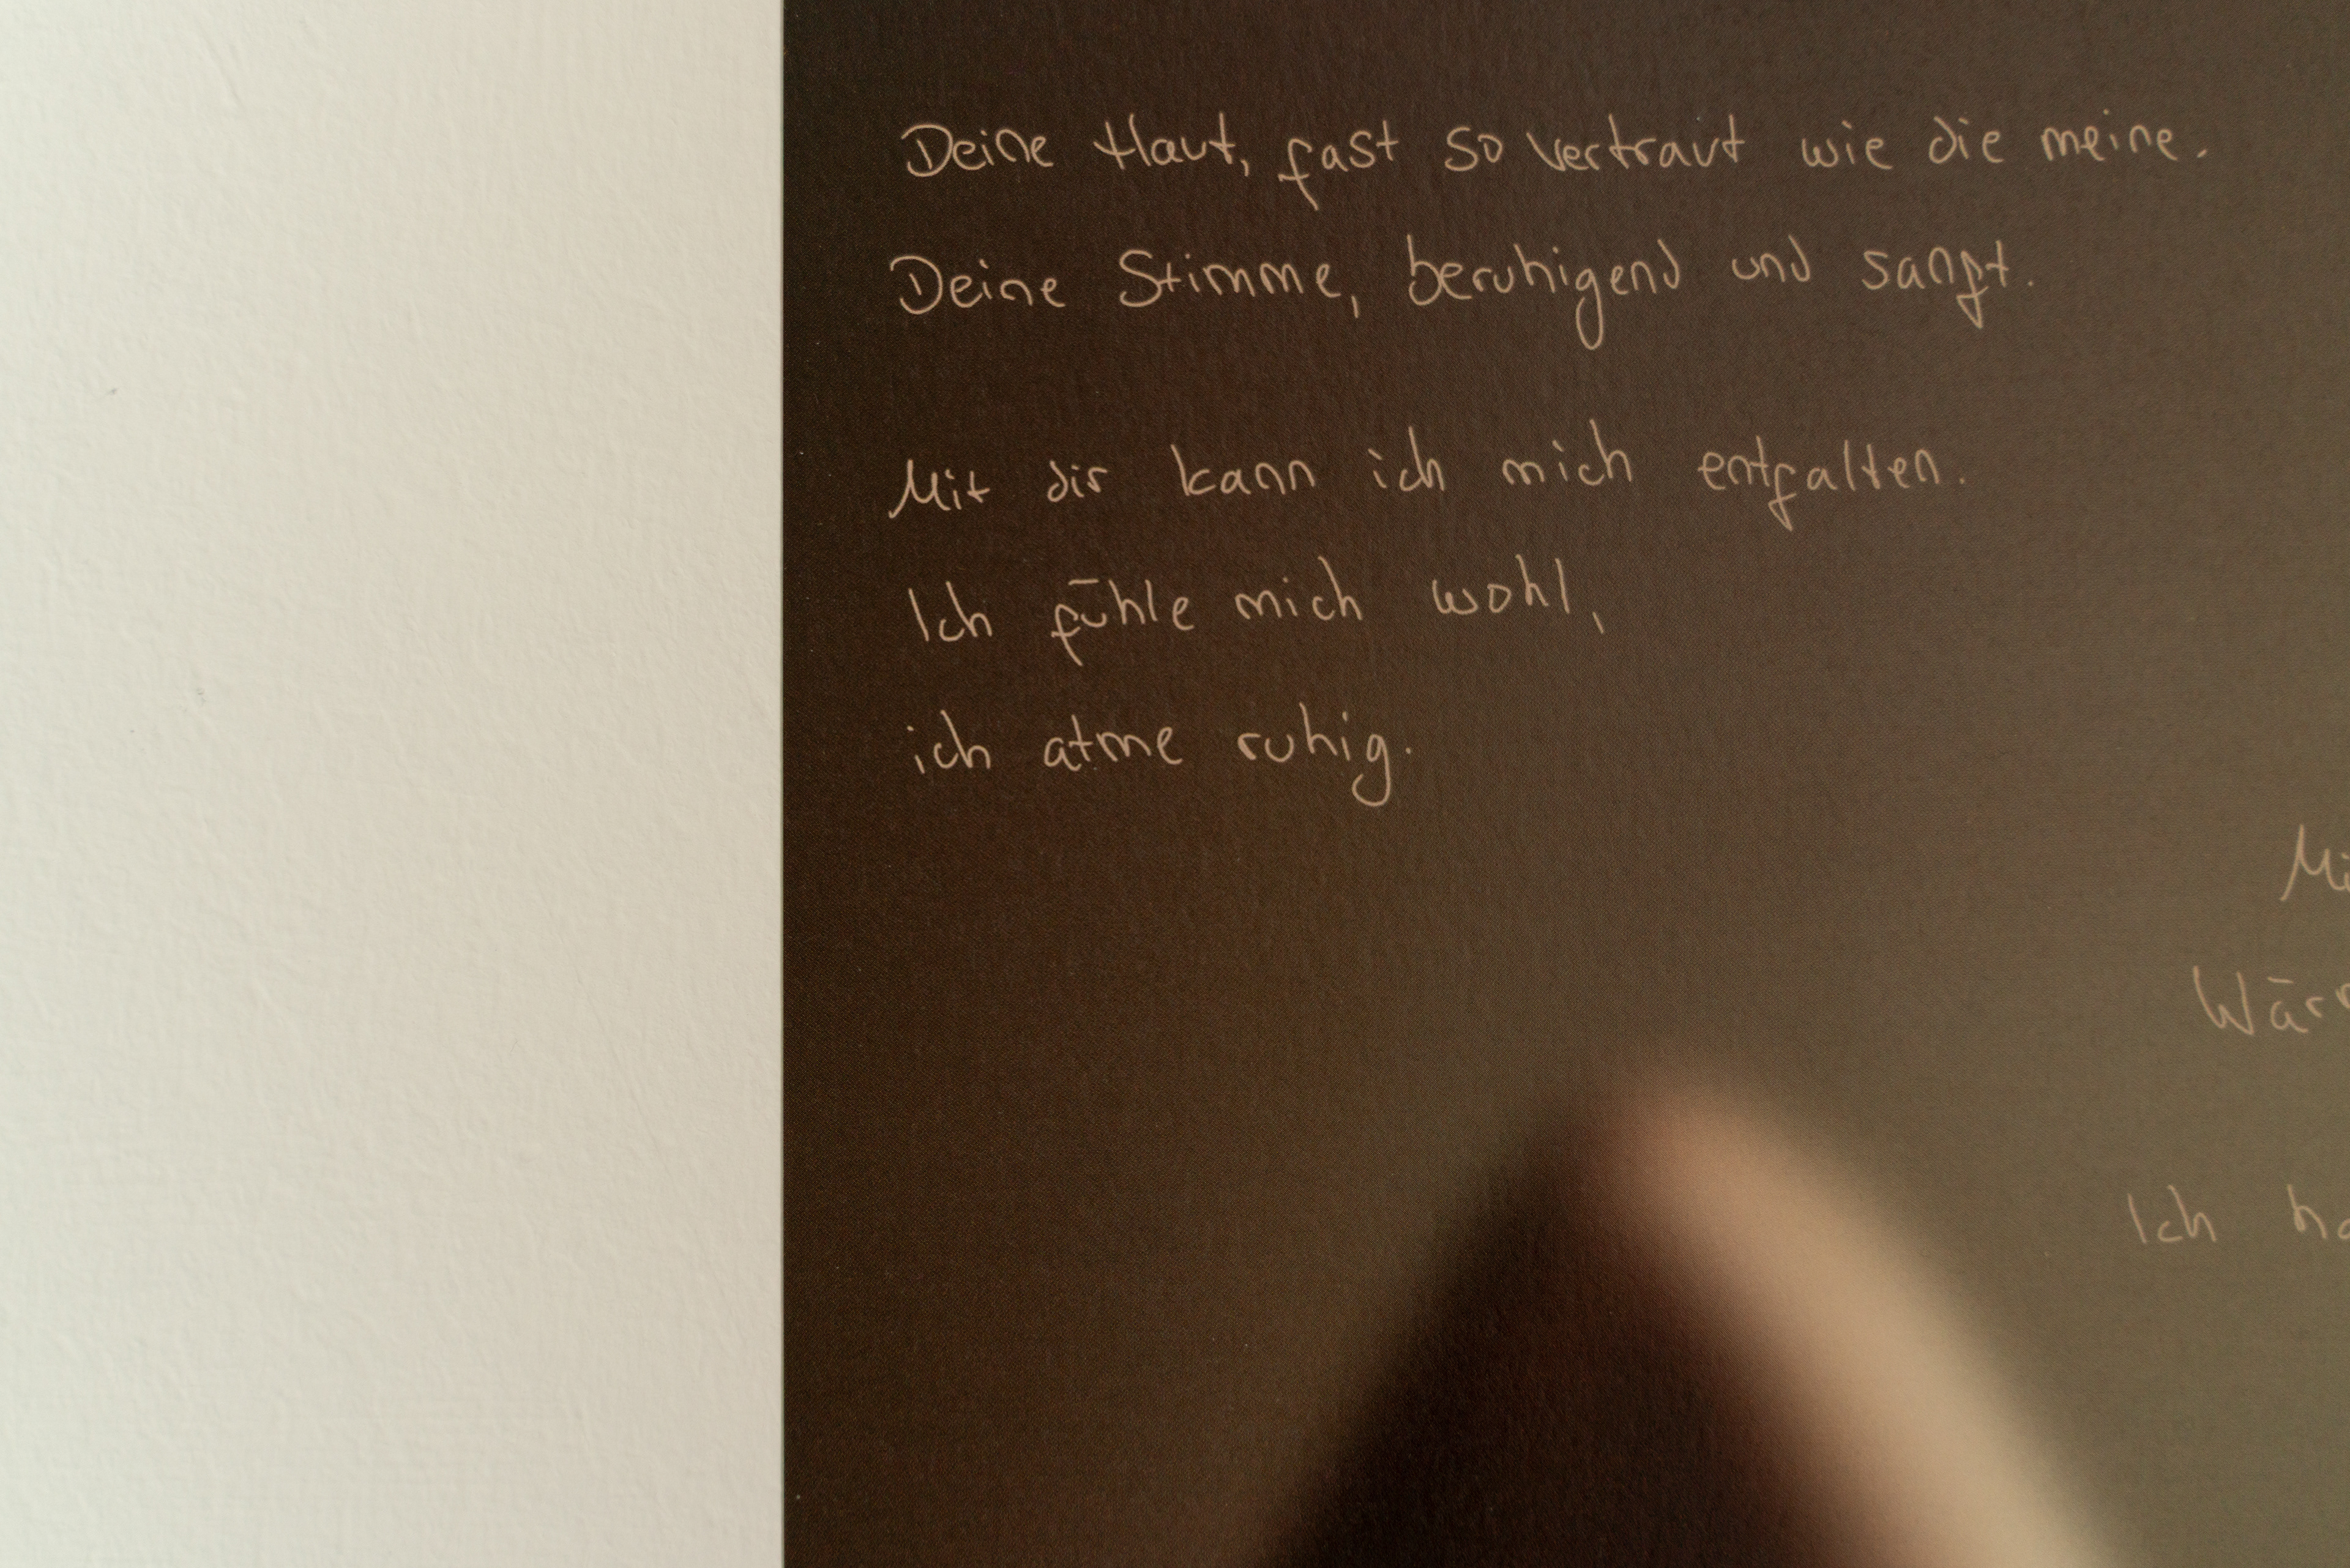 Deine Haut, fast so vertraut wie die meine.
Deine Stimme, beruhigend und sanft.
Mit dir kann ich mich entfalten.
Ich fühle mich wohl,
ich atme ruhig.
Ich